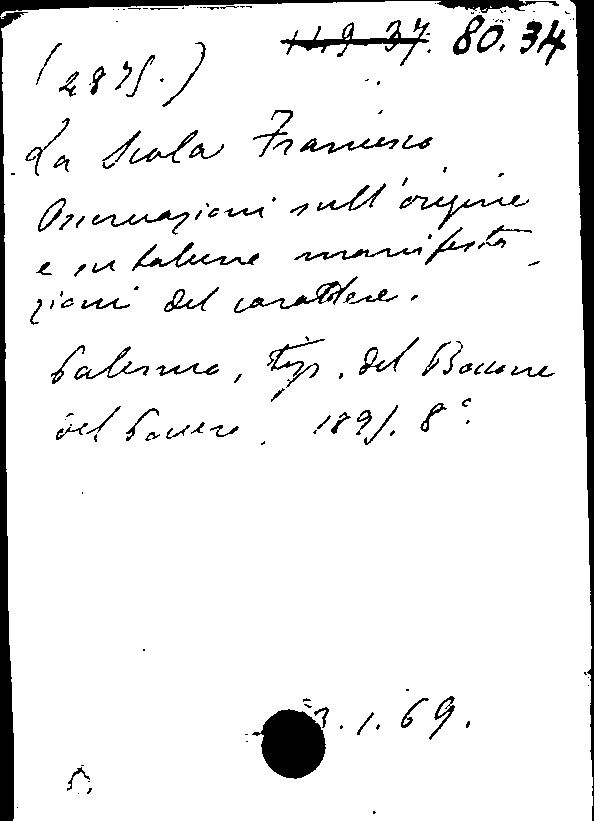 149-37. 80.34
(2875.)
La Scola Francesco
Osservazioni sull'origine
e su talune manifesta
zioni del carattere.
Palermo, tip. del Boccone
del Povero. 1891. 8°.
3.1.69.